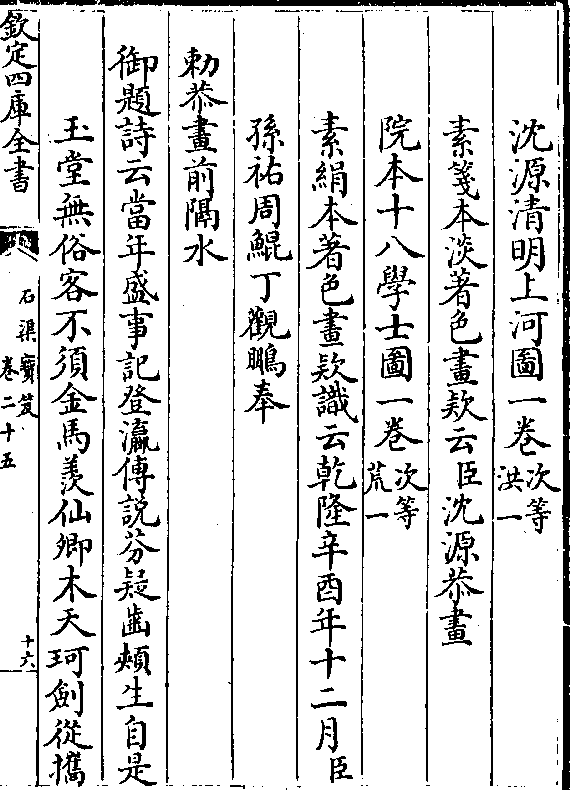 沈源清明上河圖一卷次等洪一
素箋本淡著色畫欵云臣沈源恭畫
院本十八學士圖一卷次等荒一
素絹本著色畫欵識云乾隆辛酉年十二月臣
孫祐周鯤丁觀鵬奉
勅恭畫前隔水
御題詩云當年盛事記登瀛傳說芬疑齒頰生自是
玉堂無俗客不須金馬羨仙卿木天珂劍從攜
欽定四庫全書
石渠寶笈
卷二十五
十六